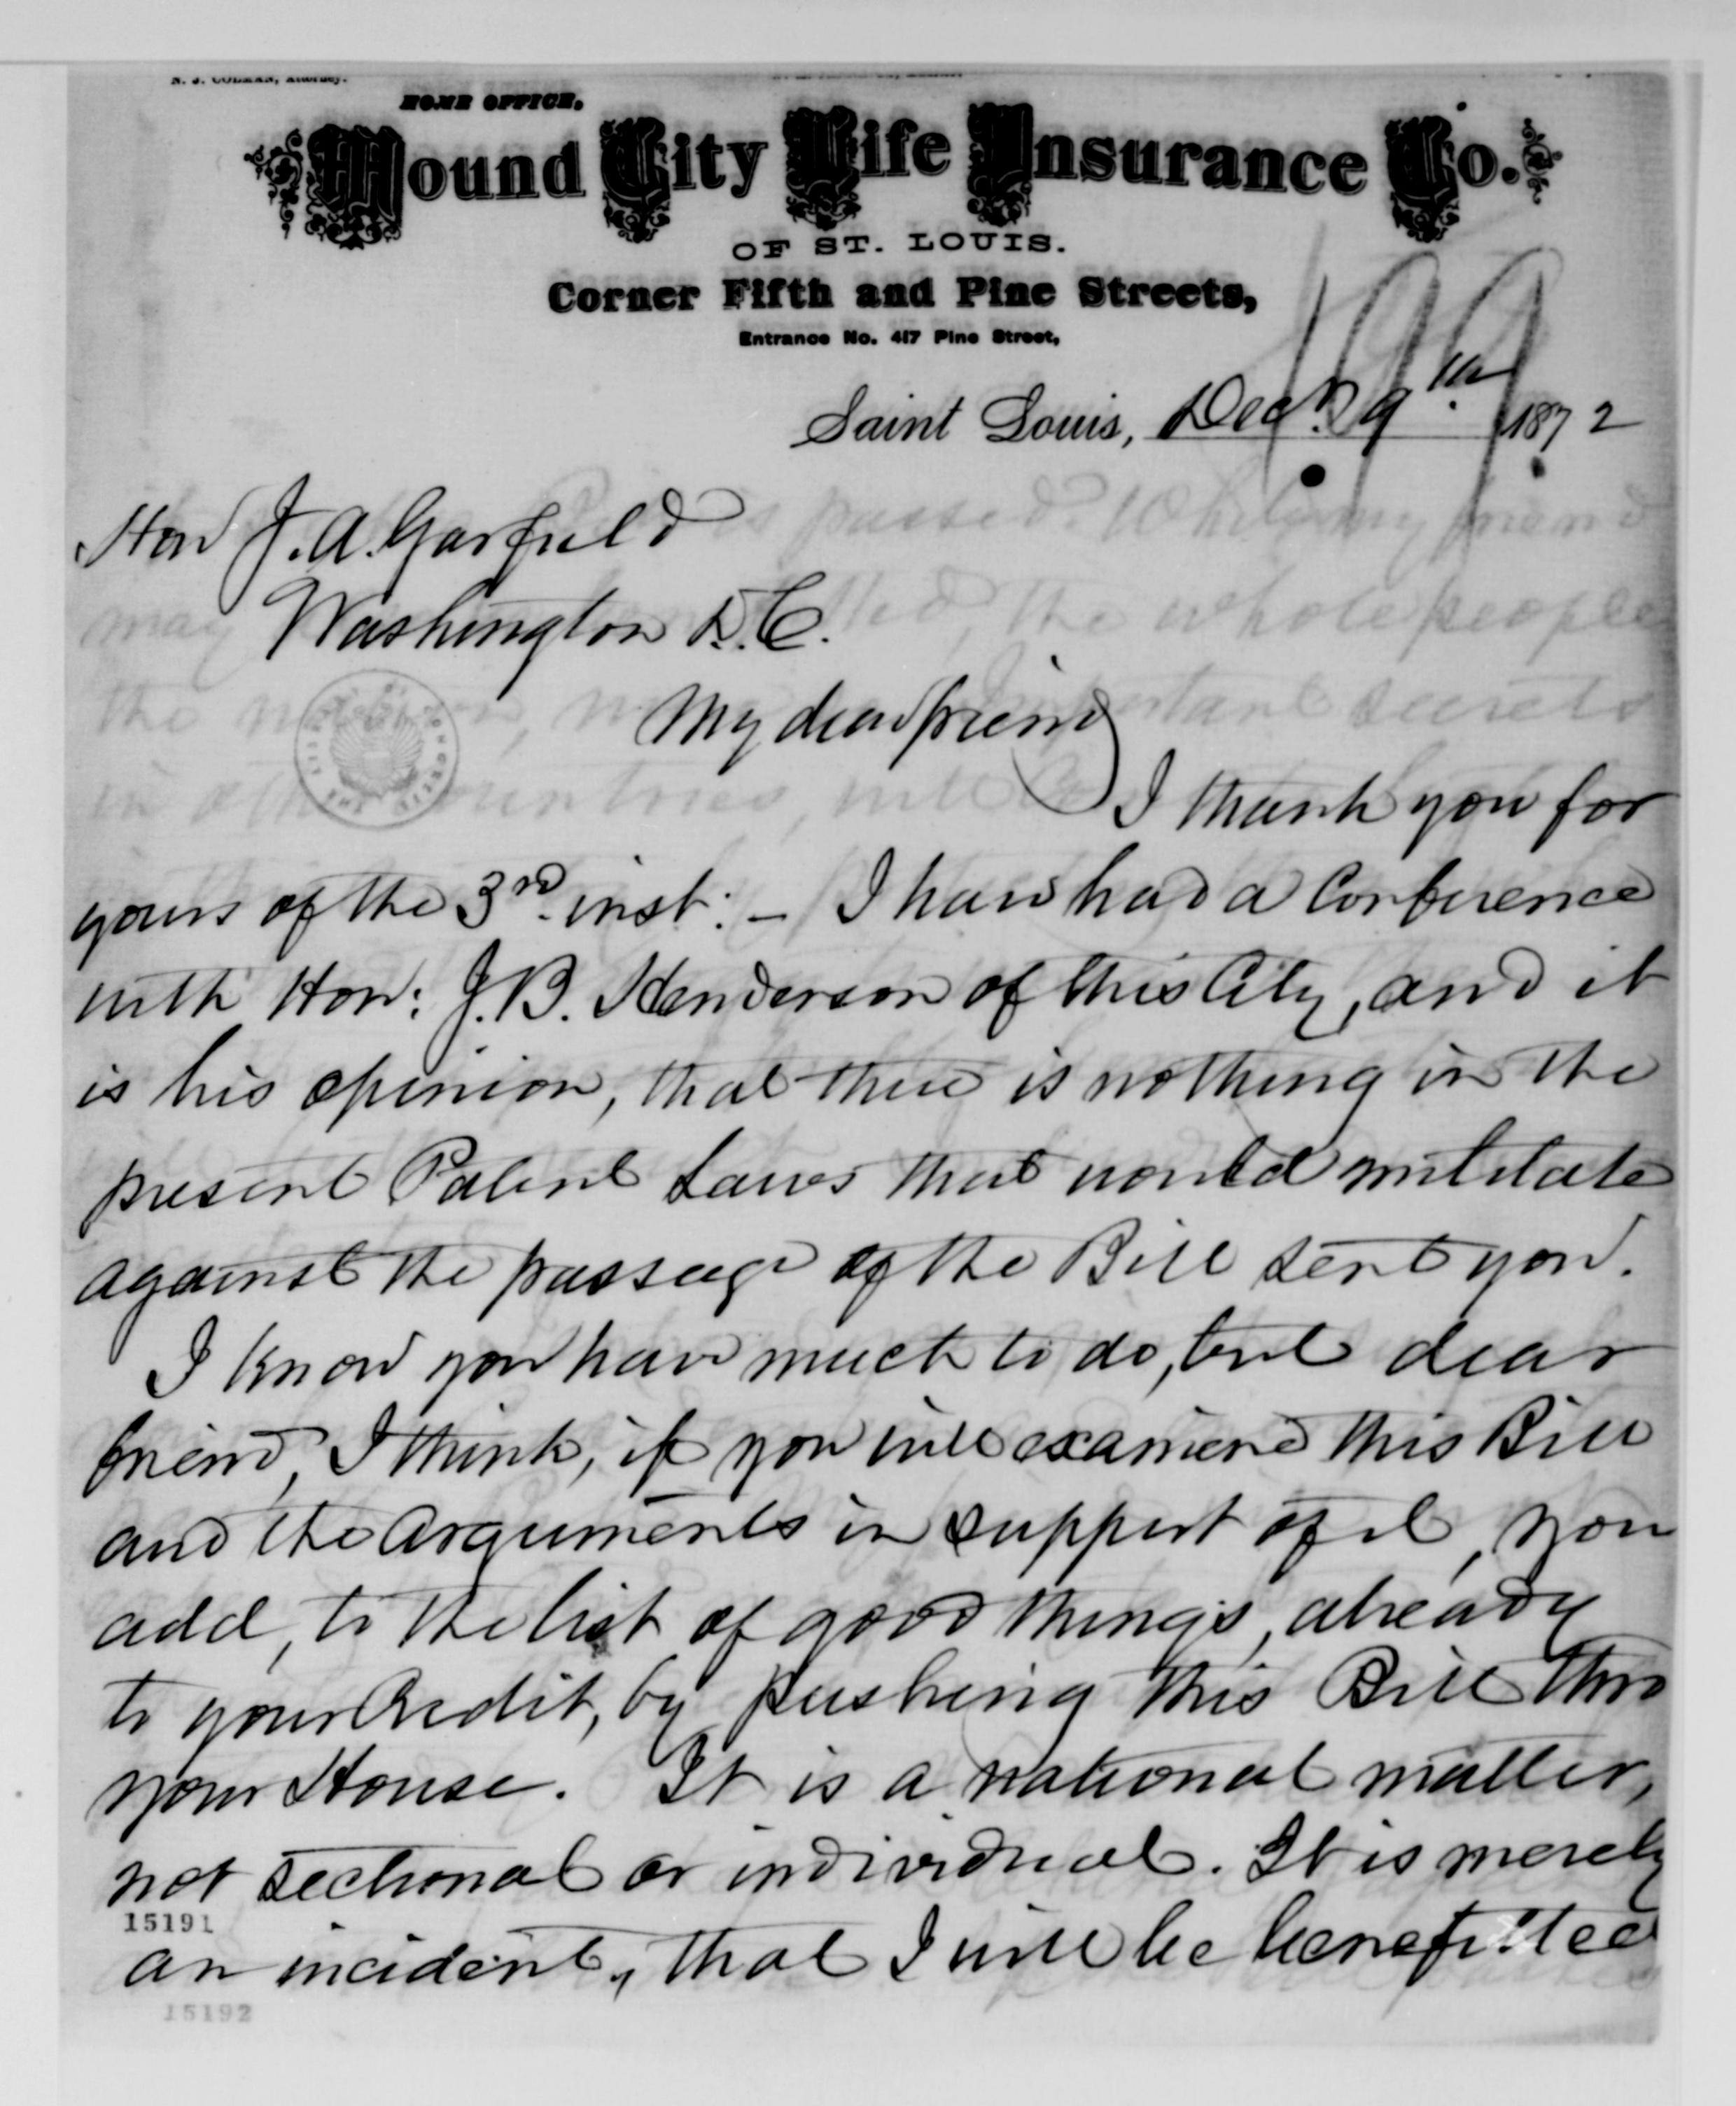 N. J. COLMAN, Attorney.
HOME OFFICE,
Mound City Life Insurance Co.
OF ST. LOUIS.
Corner Fifth and Pine Streets,
Entrance No. 417 Pine Street,
199
Saint Louis, Decr. 9th 1872
Hon J. A. Garfield
Washington D.C.
My dear friend
I thank you for
yours of the 3rd inst: – I have had a Conference
with Hon: J. B. Henderson of this City, and it
is his opinion, that there is nothing in the
present Patent Laws that would militate
against the passage of the Bill sent you.
I know you have much to do, but dear
friend, I think, if you will examine this Bill
and the arguments in support of it, you
add, to the list of good things, already
to your Credit, by pushing this Bill thro
your House. It is a national matter,
not sectional or individual. It is merely
15191
an incident, that I will be benefitted
15192